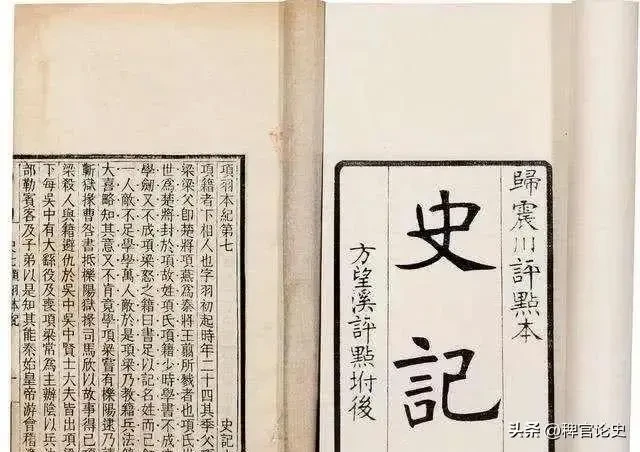 歸震川評點本
史記
方望溪評點坿後
項羽本紀第七 史記
項籍者下相人也字羽初起時年二十四其季父項
梁梁父卽楚將項燕爲秦將王翦所戮者也項氏世
世爲楚將封於項故姓項氏項籍少時學書不成
學劍又不成項梁怒之籍曰書足以記名姓而已
一人敵不足學學萬人敵於是項梁乃教籍兵法
大喜略知其意又不肯竟學項梁嘗有櫟陽逮乃
斬獄掾曹咎書抵櫟陽獄掾司馬欣以故事得已
梁殺人與籍避仇於吳中吳中賢士大夫皆出項
下每吳中有大繇役及喪項梁常爲主辦陰以兵
部勒賓客及子弟以是知其能秦始皇帝游會稽
頭条 @稗官论史